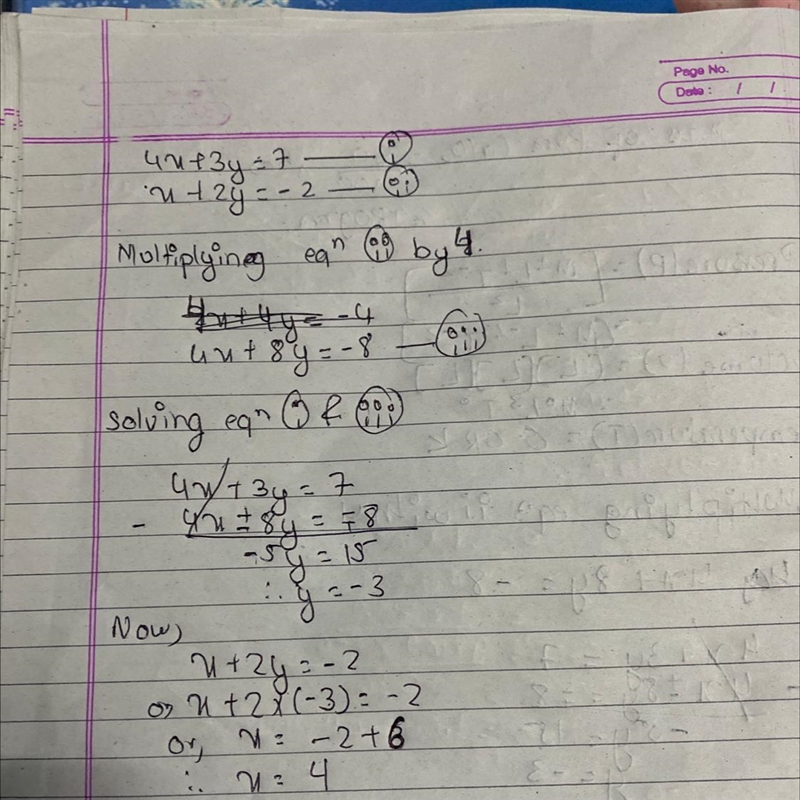 Page No.
Date : / /
4x+3y=7 —— (i)
x+2y=-2 —— (ii)
Multiplying eqⁿ (ii) by 4.
4x+4y=-4
4x+8y=-8 —— (iii)
Solving eqⁿ (i) & (iii)
4x+3y=7
- 4x±8y=∓8
-5y=15
∴ y=-3
Now,
x+2y=-2
or, x+2×(-3)=-2
Or, x= -2+6
∴ x= 4